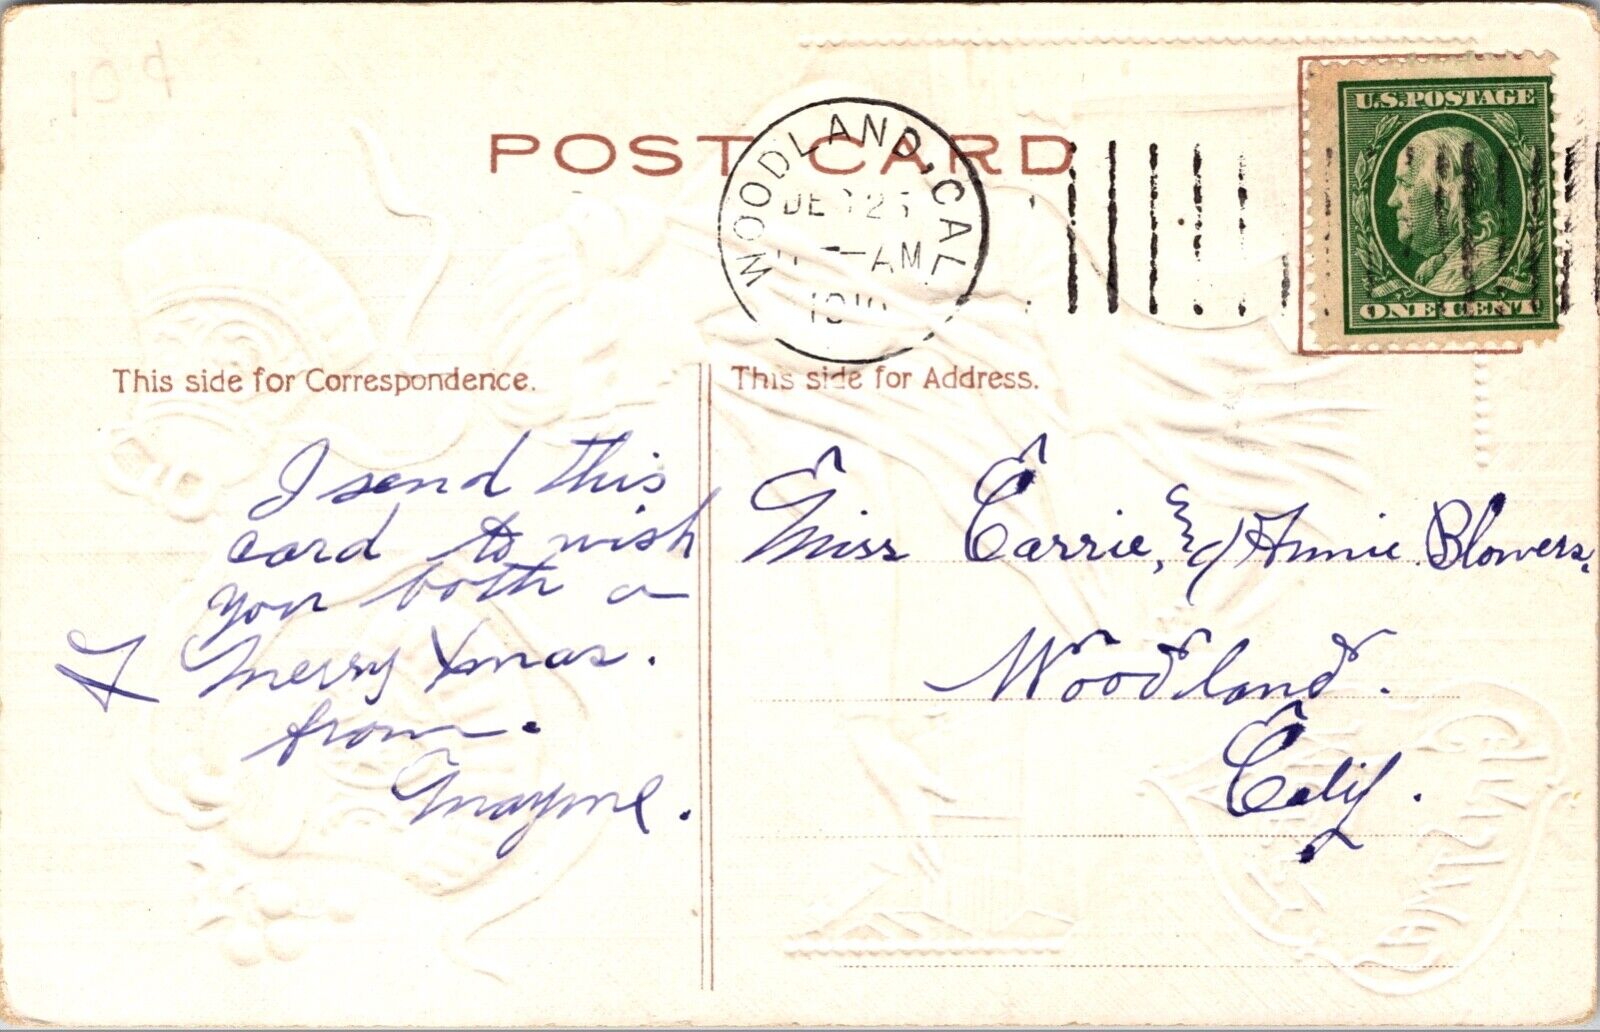 10¢
POST CARD
WOODLAND, CAL.
DEC 25
AM
1910
U.S. POSTAGE
ONE CENT
This side for Correspondence.
This side for Address.
I send this
card to wish
you both a
Merry Xmas.
from.
Mayme.
Miss Carrie, & Annie Blowers.
Woodland.
Calif.